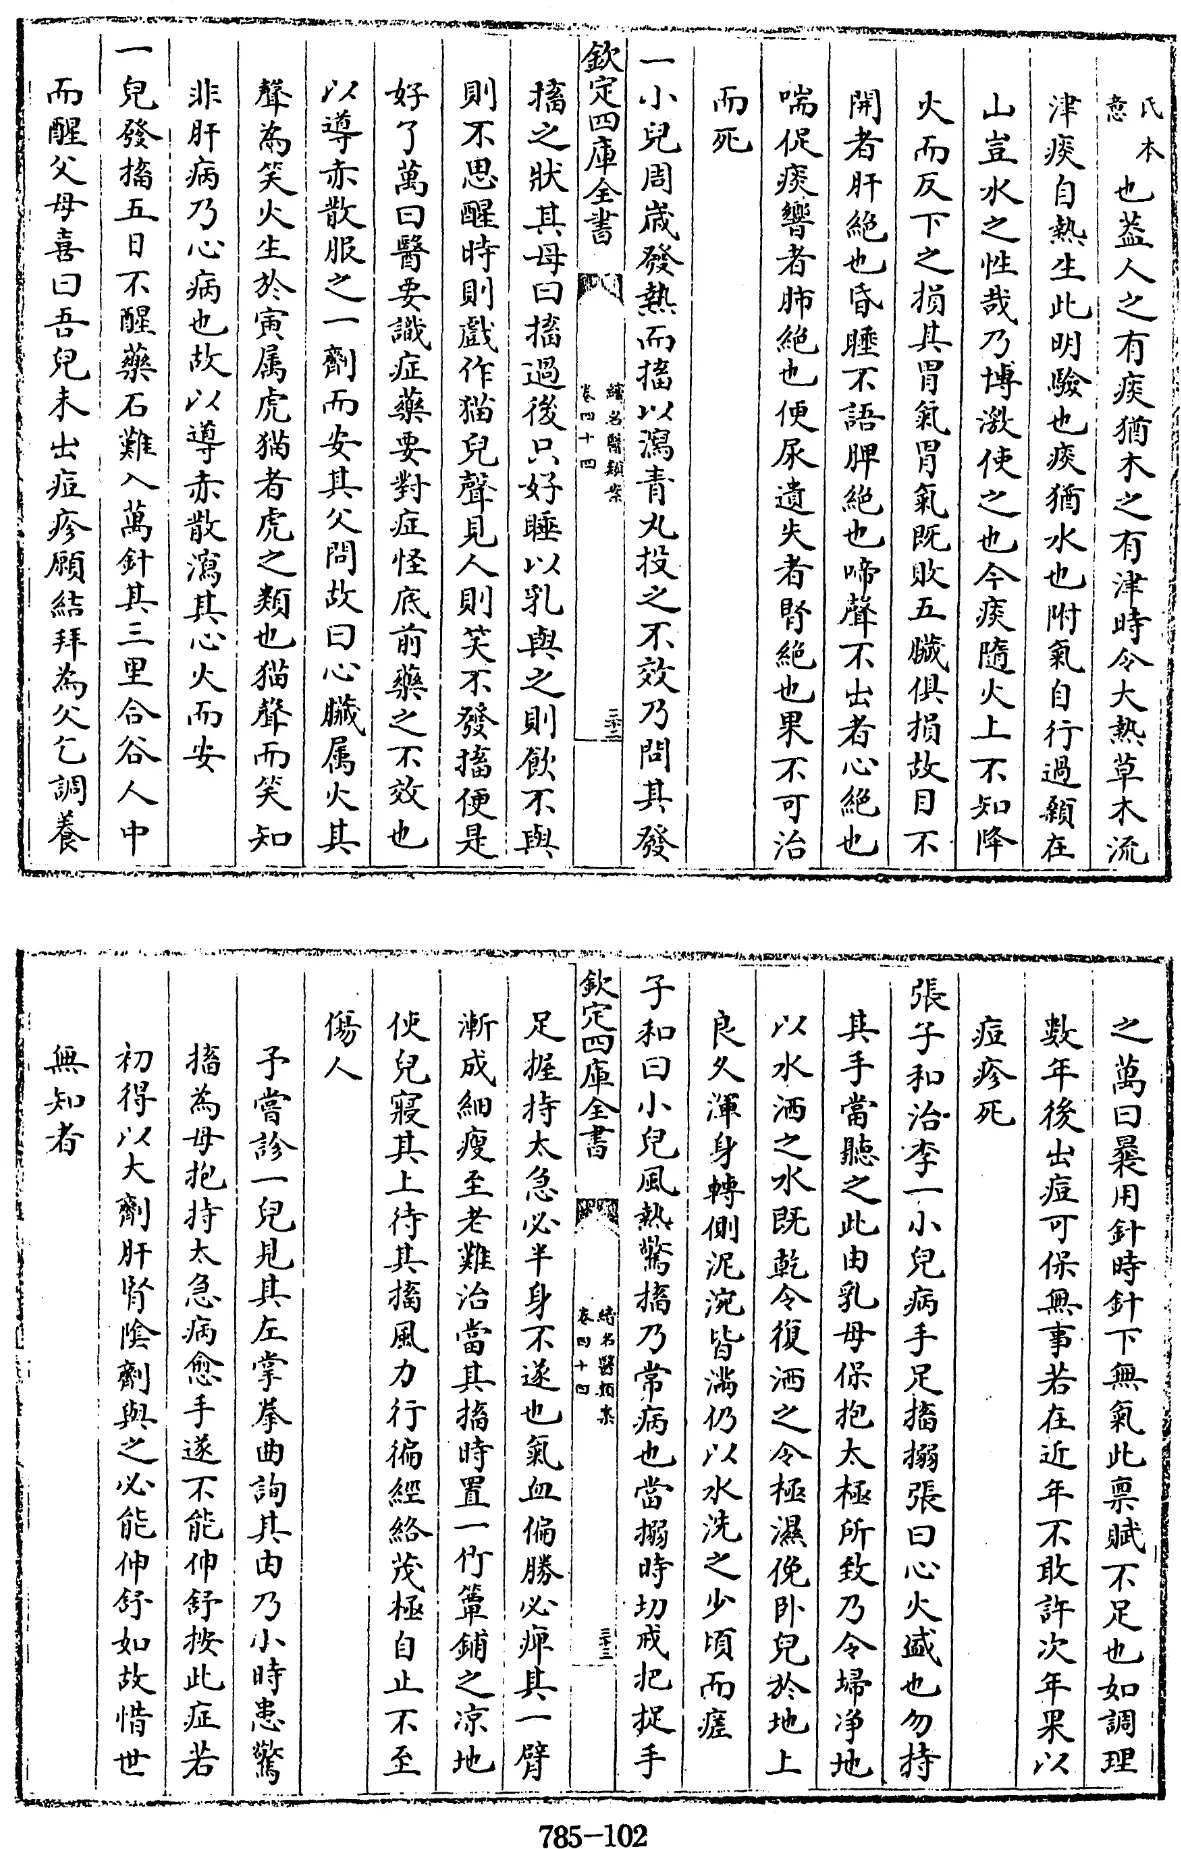 氏本意也葢人之有痰猶木之有津時令大熱草木流
津痰自熱生此明驗也痰猶水也附氣自行過顙在
山豈水之性哉乃博激使之也今痰隨火上不知降
火而反下之損其胃氣胃氣既敗五臟俱損故目不
開者肝絶也昏睡不語脾絶也啼聲不出者心絶也
喘促痰響者肺絶也便尿遺失者腎絶也果不可治
而死
一小兒周歲發熱而搐以瀉青丸投之不效乃問其發
欽定四庫全書
續名醫類案
卷四十四
三十二
搐之狀其母曰搐過後只好睡以乳與之則飲不與
則不思醒時則戲作猫兒聲見人則笑不發搐便是
好了萬曰醫要識症藥要對症怪底前藥之不效也
以導赤散服之一劑而安其父問故曰心臟属火其
聲為笑火生於寅属虎猫者虎之類也猫聲而笑知
非肝病乃心病也故以導赤散瀉其心火而安
一兒發搐五日不醒藥石難入萬針其三里合谷人中
而醒父母喜曰吾兒未出痘疹願結拜為父乞調養
之萬曰曩用針時針下無氣此禀賦不足也如調理
數年後出痘可保無事若在近年不敢許次年果以
痘疹死
張子和治李一小兒病手足搐搦張曰心火盛也勿持
其手當聽之此由乳母保抱太極所致乃令埽净地
以水洒之水既乾令復洒之令極濕俛卧兒於地上
良久渾身轉側泥涴皆滿仍以水洗之少頃而瘥
子和曰小兒風熱驚搐乃常病也當搦時切戒把捉手
欽定四庫全書
續名醫類案
卷四十四
三十三
足握持太急必半身不遂也氣血偏勝必痹其一臂
漸成細瘦至老難治當其搐時置一竹簟鋪之凉地
使兒寢其上待其搐風力行徧經絡茂極自止不至
傷人
予嘗診一兒見其左掌拳曲詢其由乃小時患驚
搐為母抱持太急病愈手遂不能伸舒按此症若
初得以大劑肝腎陰劑與之必能伸舒如故惜世
無知者
785-102